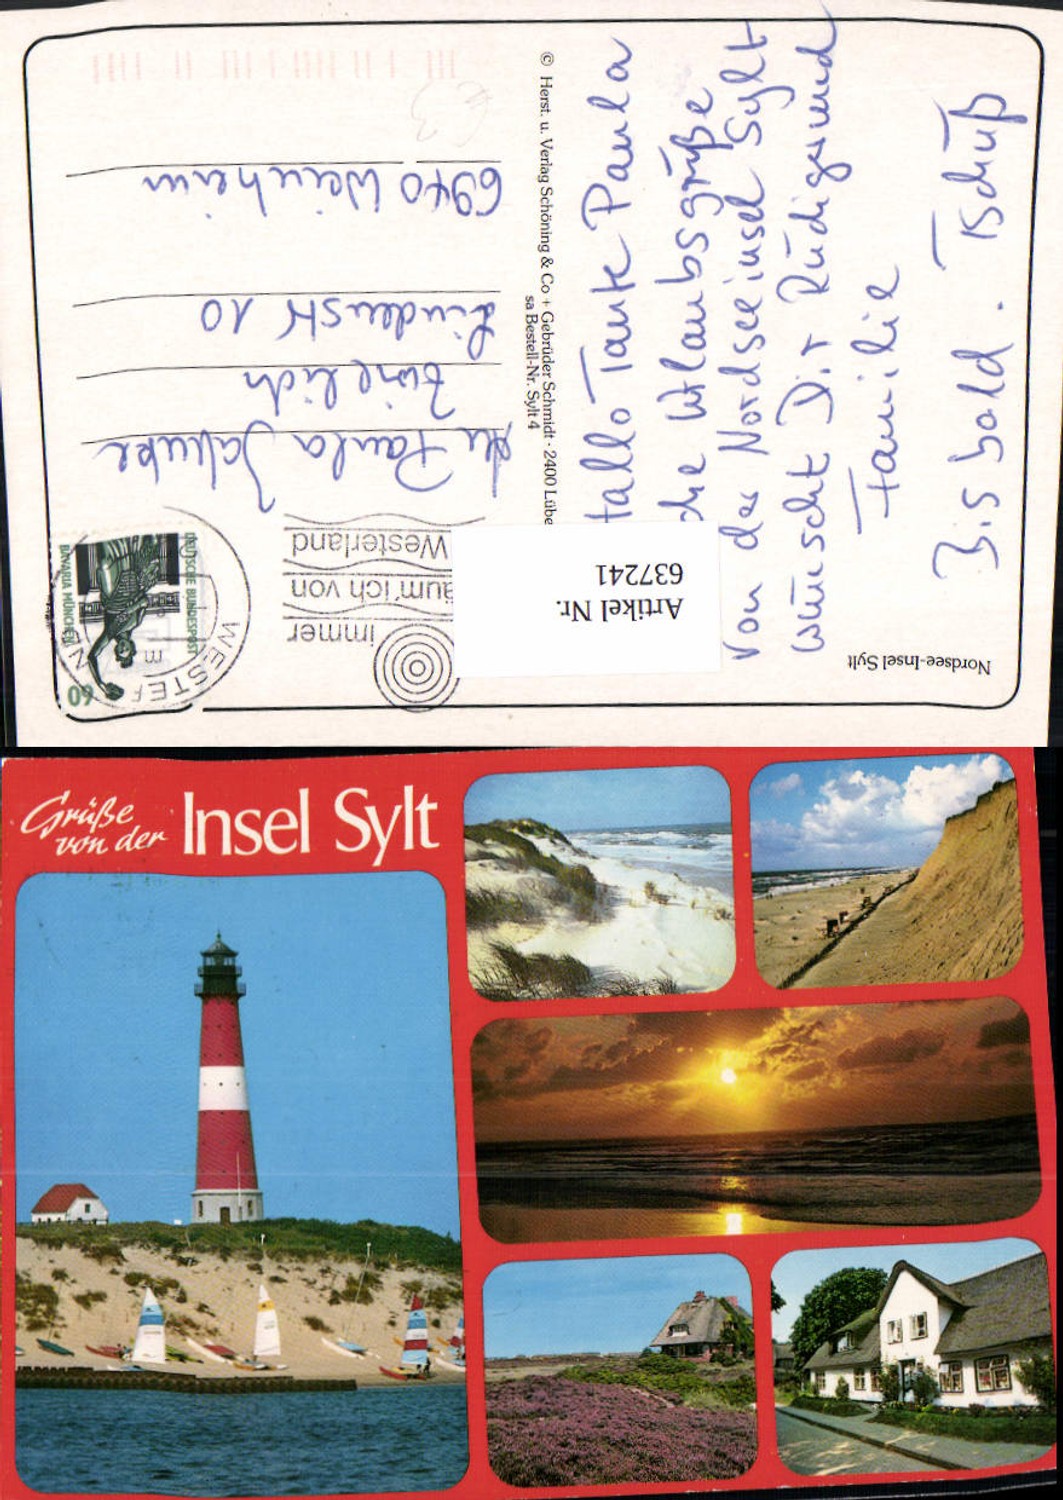 Nordsee-Insel Sylt
Hallo Tante Paula
die Urlaubsgrüße
von der Nordseeinsel Sylt
wünscht Dir Rüdiger und
Familie
Bis bald. Tschüß
© Herst. u. Verlag Schöning & Co + Gebrüder Schmidt · 2400 Lübe
sa Bestell-Nr. Sylt 4
Artikel Nr.
637241
immer
äum ich von
Westerland
WESTE
60
DEUTSCHE BUNDESPOST
BAVARIA MÜNCHEN
Paula
Lindenstr 10
6940 Weinheim
Grüße
von der
Insel Sylt